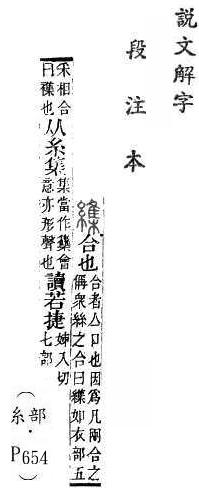 說文解字
段注本
䌖合也
合者亼口也因爲凡兩合之
偁衆絲之合曰䌖如衣部五
采相合
曰襍也
从糸集
集當作雧會
意亦形聲也
讀若捷
姊入切
七部
（糸部·P654）